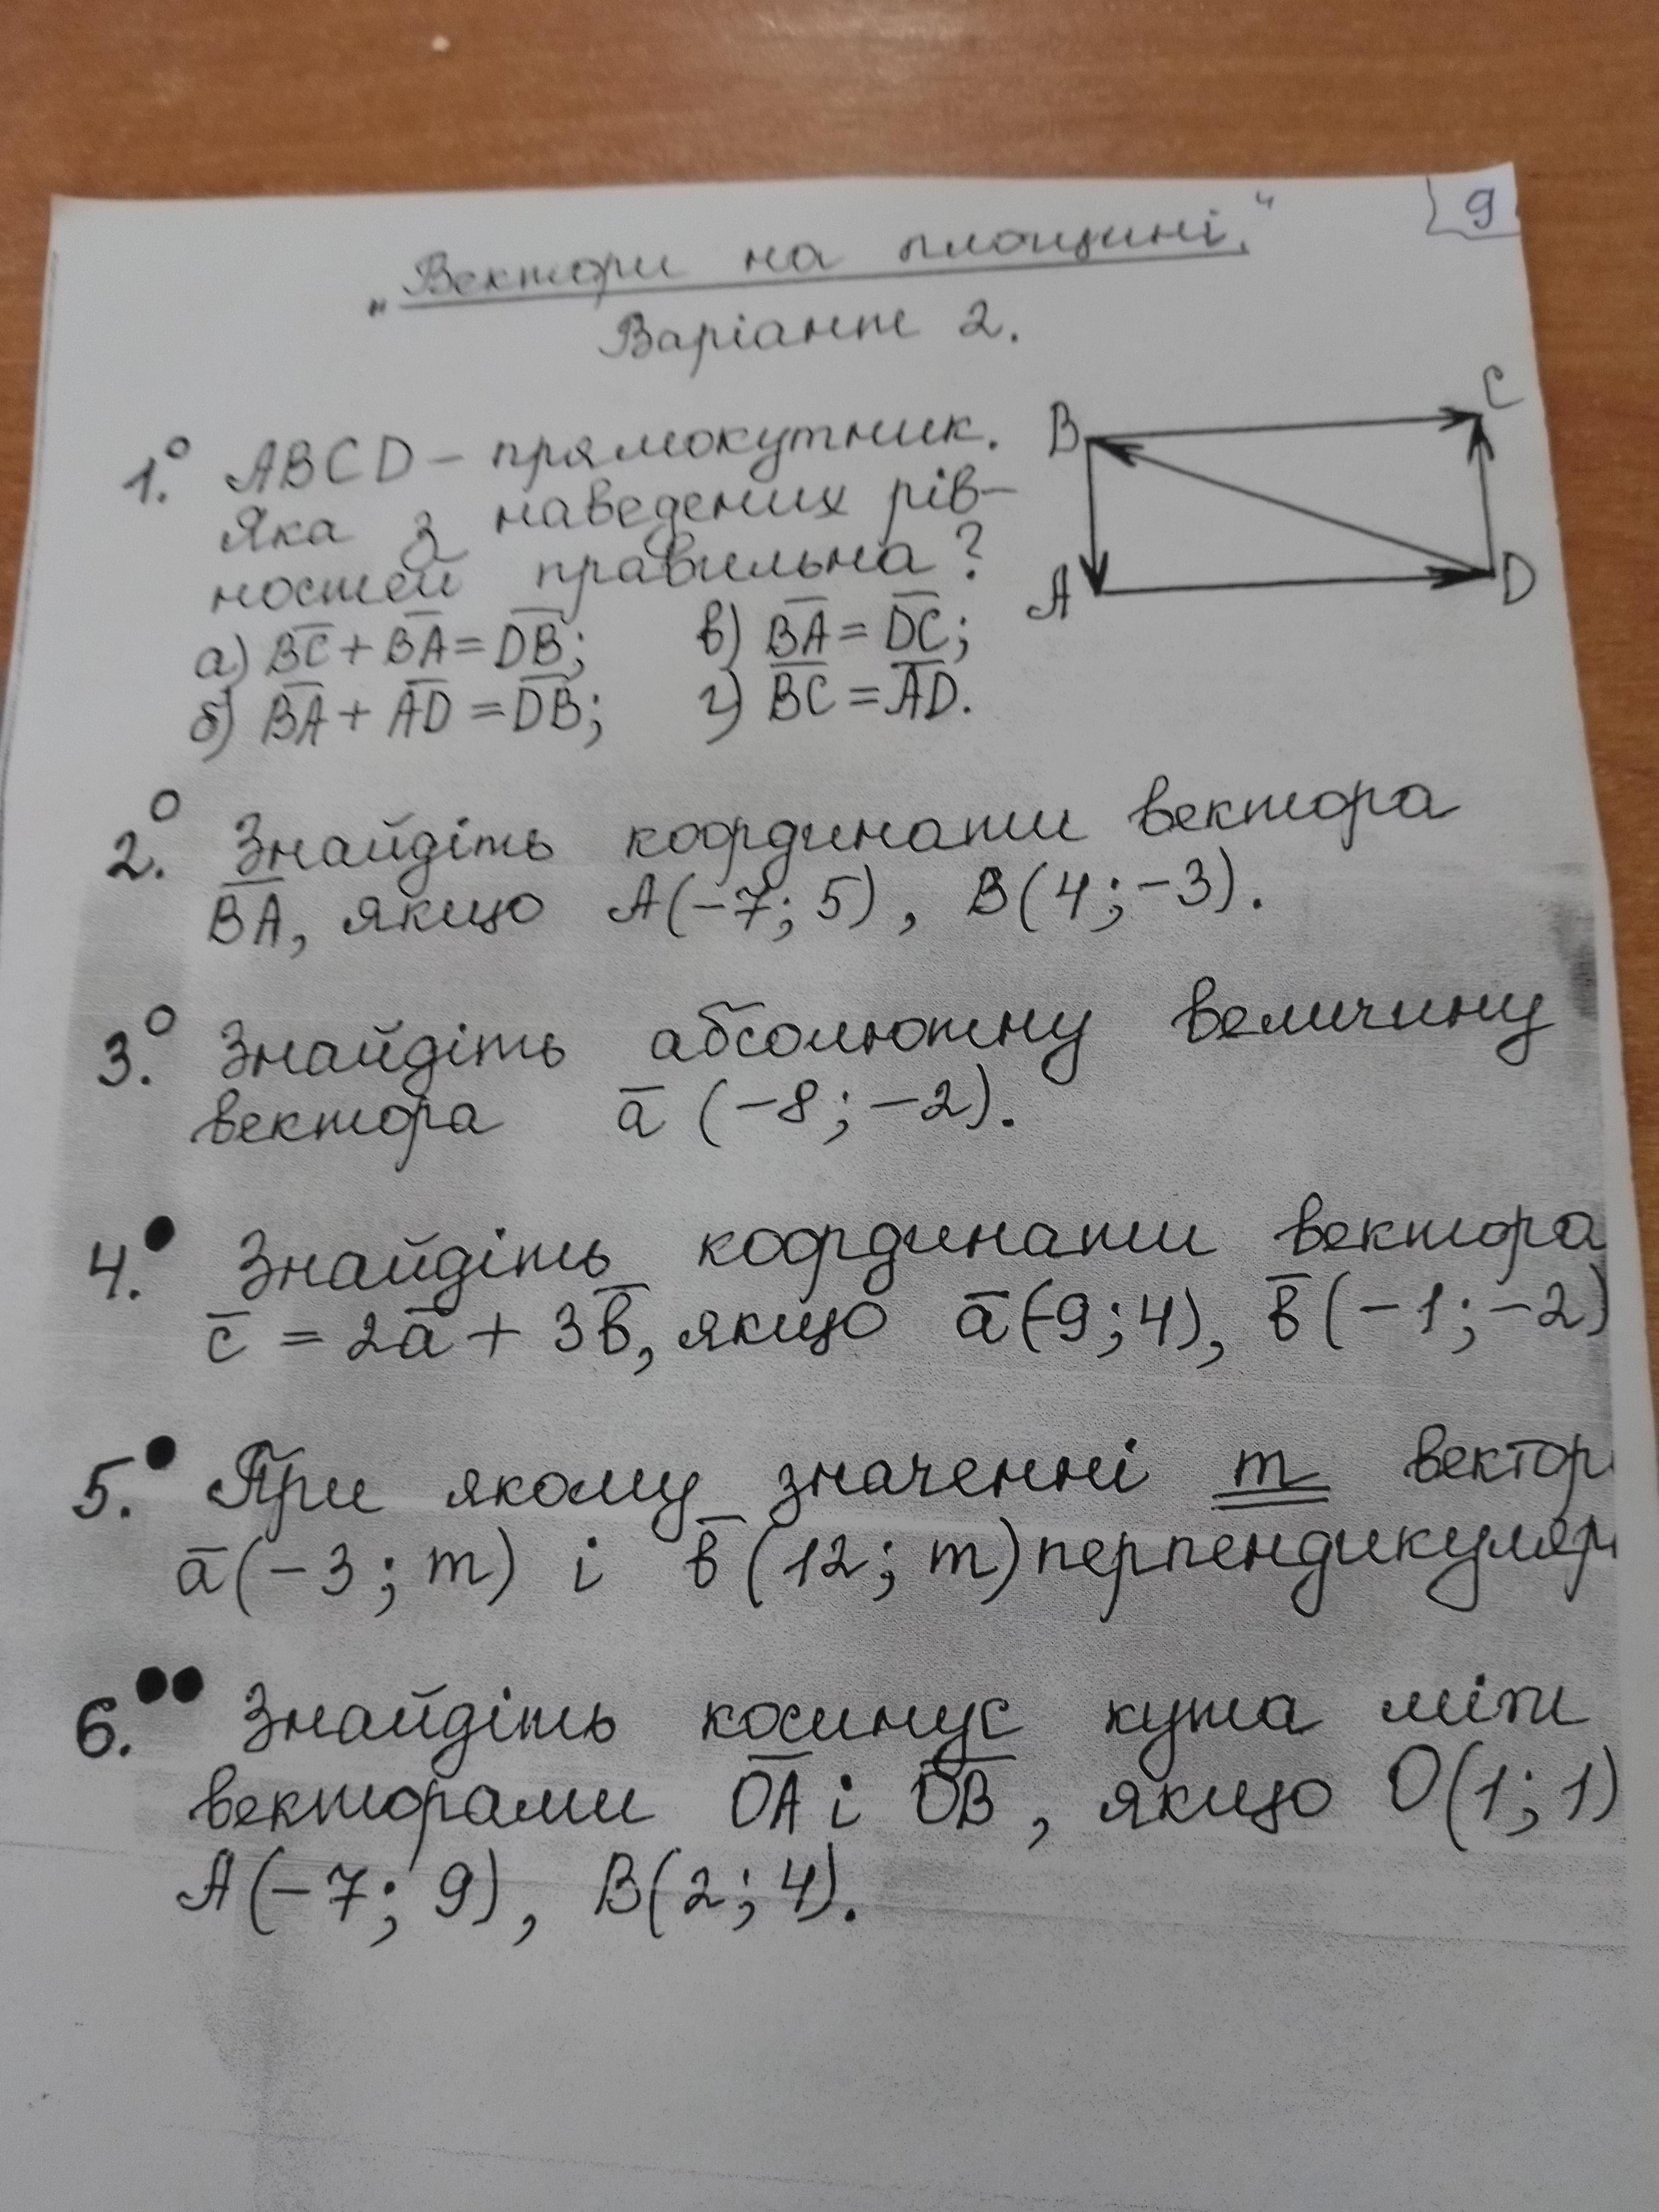 9
„Вектори на площині."
Варіант 2.
1.° ABCD – прямокутник.
Яка з наведених рів-
ностей правильна?
а) BC + BA = DB; в) BA = DC;
б) BA + AD = DB; г) BC = AD.
B C
A D
2.° Знайдіть координати вектора
BA, якщо A(-7; 5), B(4; -3).
3.° Знайдіть абсолютну величину
вектора a (-8; -2).
4.• Знайдіть координати вектора
c = 2a + 3b, якщо a(-9; 4), b(-1; -2)
5.• При якому значенні m вектор
a(-3; m) і b(12; m) перпендикуляр
6.•• Знайдіть косинус кута між
векторами OA і OB, якщо O(1; 1)
A(-7; 9), B(2; 4).